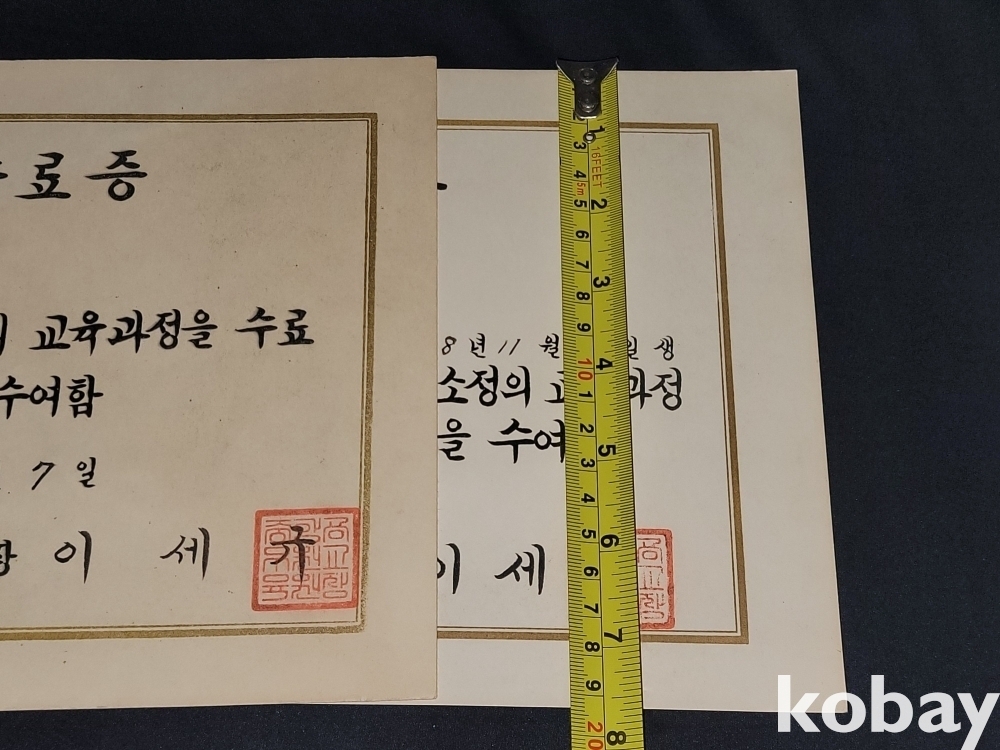 료증
교육과정을 수료
수여함
7일
이 세 규
8년 11월
일생
소정의
과정
을 수여
이 세
16FEET
5m
1
2
3
4
5
6
7
8
3
4
5
6
7
8
9
10
1
2
3
4
5
6
7
8
9
20
kobay